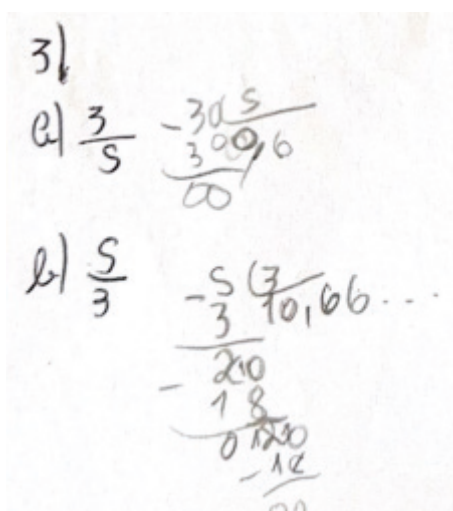 3)
a) 3/5  -30 5
300 0,6
00
b) 5/3  -5 3
3 10,66...
20
- 18
0 120
- 12